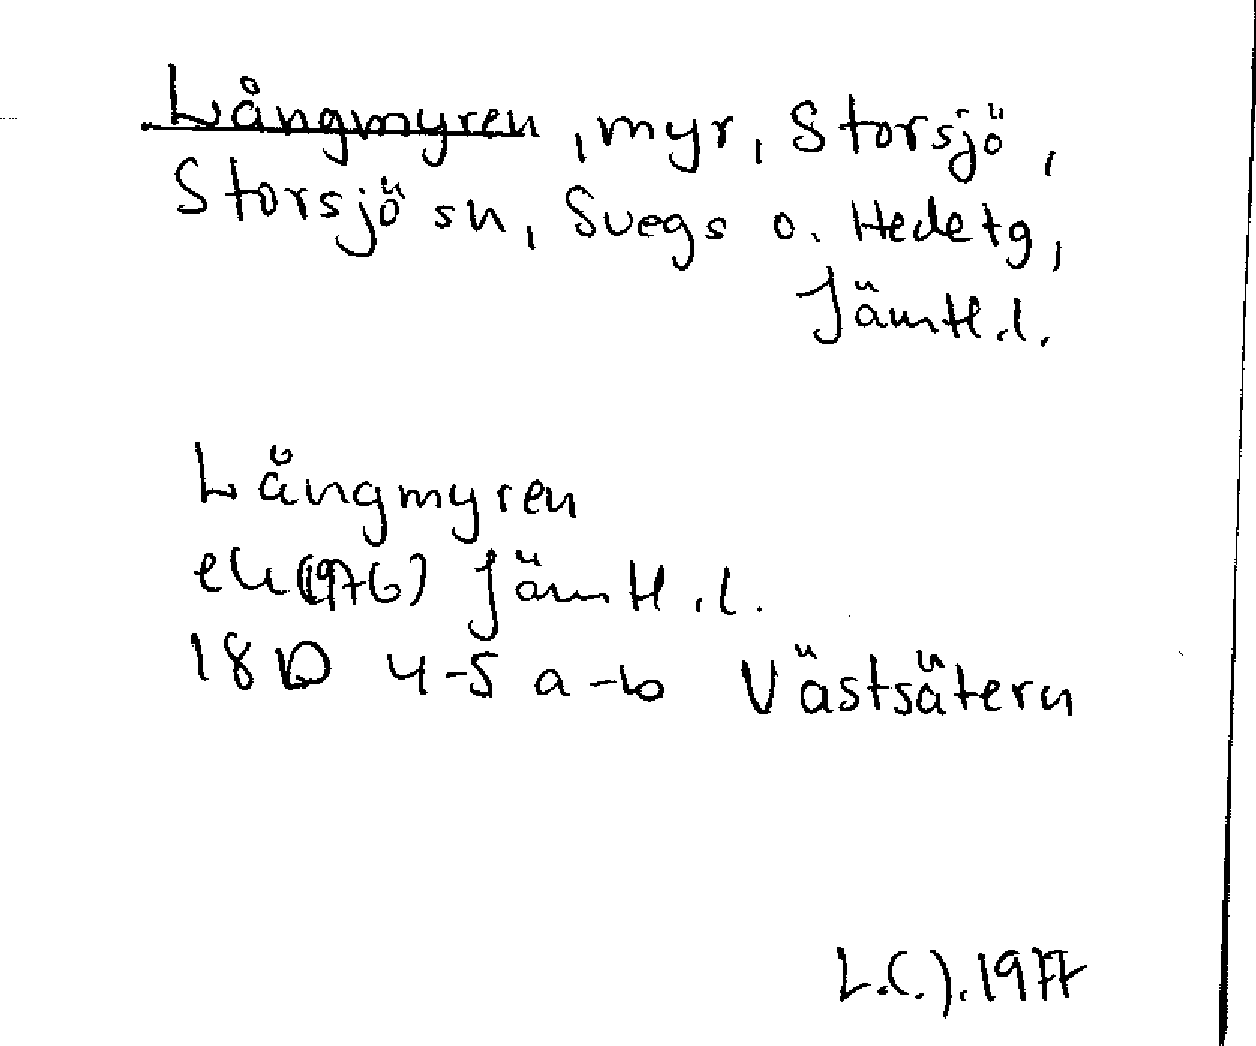 Långmyren, myr, Storsjö,
Storsjö sn, Svegs o. Hede tg,
Jämtl.l.
Långmyren
ek(1976) Jämtl.l.
18D 4-5 a-b Västsätern
L.C.J.1977